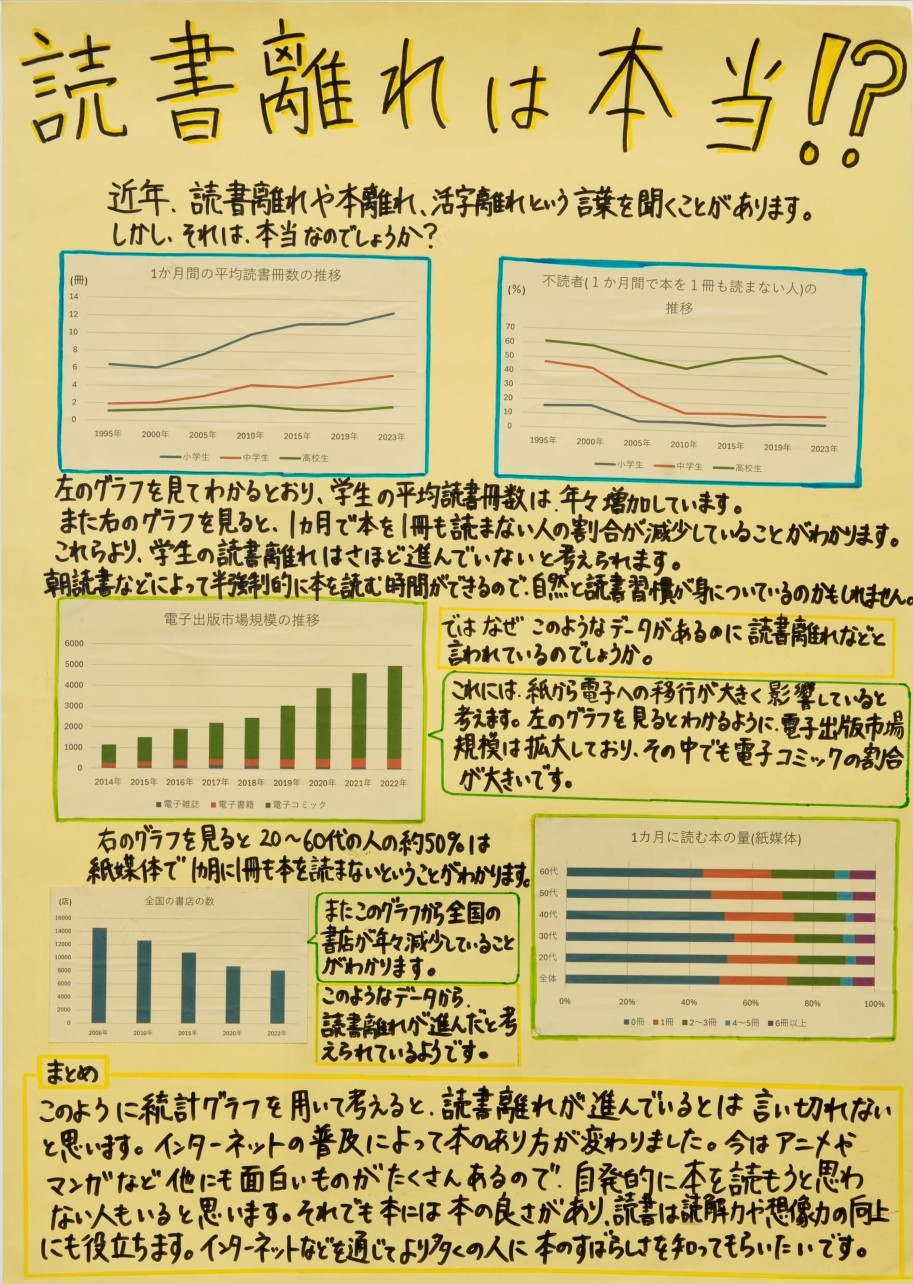 読書離れは本当!?
近年、読書離れや本離れ、活字離れという言葉を聞くことがあります。
しかし、それは、本当なのでしょうか?
1か月間の平均読書冊数の推移
(冊)
14
12
10
8
6
4
2
0
1995年 2000年 2005年 2010年 2015年 2019年 2023年
小学生 中学生 高校生
不読者(1か月間で本を1冊も読まない人)の
推移
(%)
70
60
50
40
30
20
10
0
1995年 2000年 2005年 2010年 2015年 2019年 2023年
小学生 中学生 高校生
左のグラフを見てわかるとおり、学生の平均読書冊数は、年々増加しています。
また右のグラフを見ると、1カ月で本を1冊も読まない人の割合が減少していることがわかります。
これらより、学生の読書離れはさほど進んでいないと考えられます。
朝読書などによって半強制的に本を読む時間ができるので、自然と読書習慣が身についているのかもしれません。
電子出版市場規模の推移
6000
5000
4000
3000
2000
1000
0
2014年 2015年 2016年 2017年 2018年 2019年 2020年 2021年 2022年
電子雑誌 電子書籍 電子コミック
ではなぜ このようなデータがあるのに読書離れなどと
言われているのでしょうか。
これには、紙から電子への移行が大きく影響していると
考えます。左のグラフを見るとわかるように、電子出版市場
規模は拡大しており、その中でも電子コミックの割合
が大きいです。
右のグラフを見ると20~60代の人の約50%は
紙媒体で1カ月に1冊も本を読まないということがわかります。
1カ月に読む本の量(紙媒体)
60代
50代
40代
30代
20代
全体
0% 20% 40% 60% 80% 100%
0冊 1冊 2~3冊 4~5冊 6冊以上
全国の書店の数
(店)
16000
14000
12000
10000
8000
6000
4000
2000
0
2006年 2010年 2015年 2020年 2022年
またこのグラフから全国の
書店が年々減少していること
がわかります。
このようなデータから、
読書離れが進んだと考
えられているようです。
まとめ
このように統計グラフを用いて考えると、読書離れが進んでいるとは言い切れない
と思います。インターネットの普及によって本のあり方が変わりました。今はアニメや
マンガなど他にも面白いものがたくさんあるので、自発的に本を読もうと思わ
ない人もいると思います。それでも本には本の良さがあり、読書は読解力や想像力の向上
にも役立ちます。インターネットなどを通じてより多くの人に本のすばらしさを知ってもらいたいです。